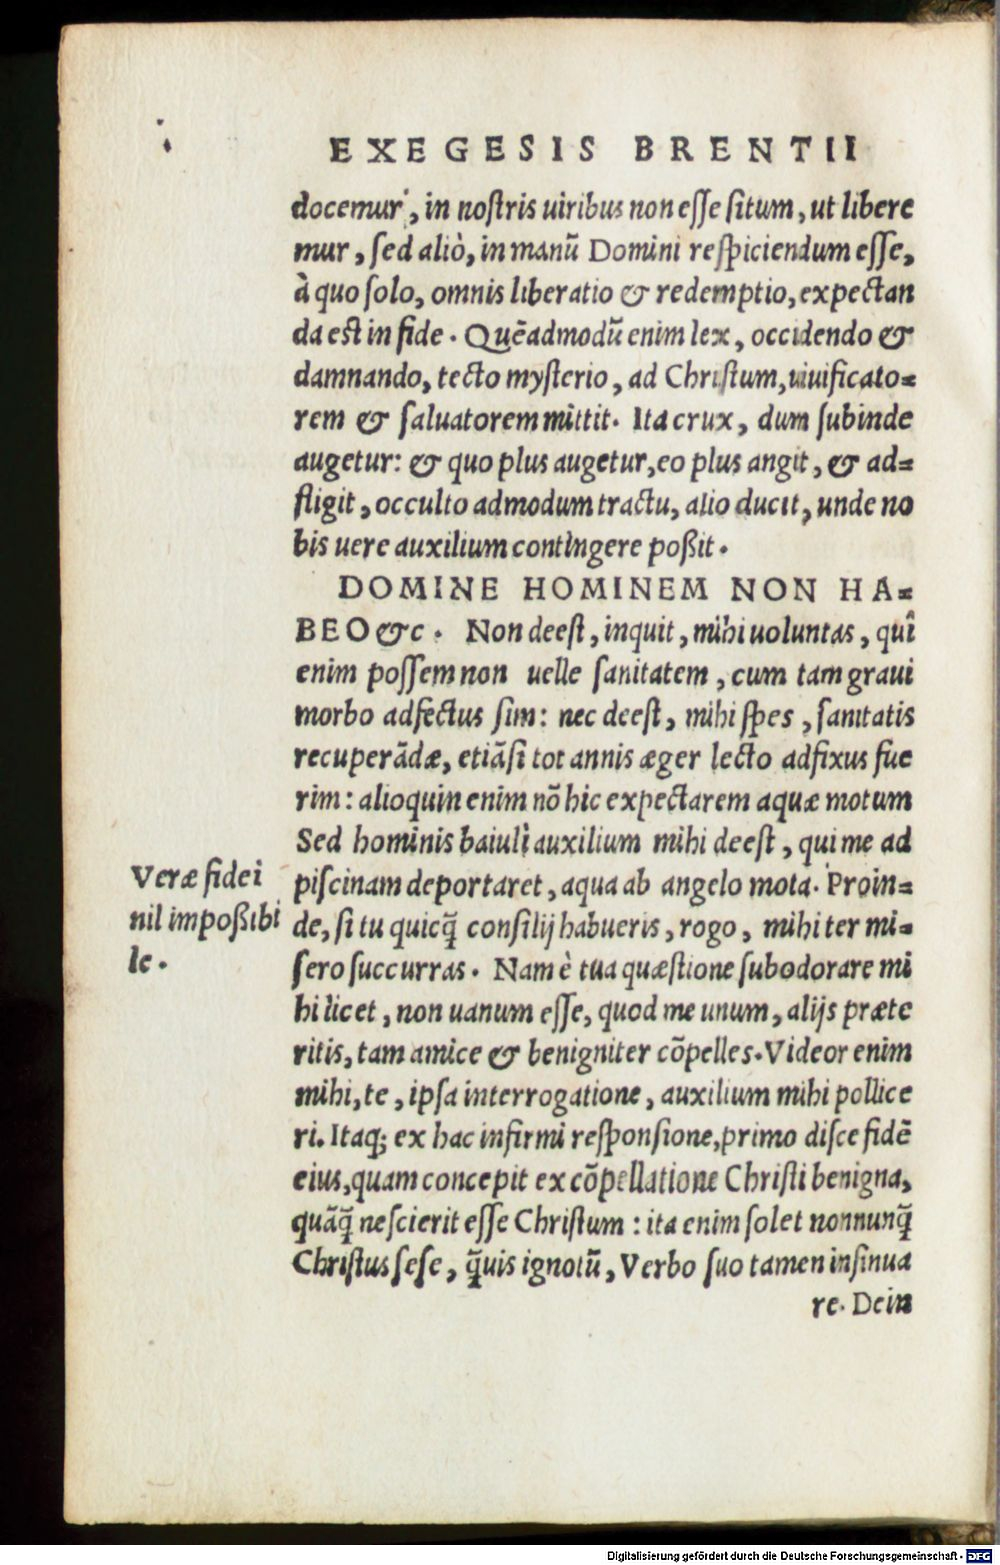 EXEGESIS BRENTII
docemur, in nostris uiribus non esse situm, ut libere
mur, sed aliò, in manũ Domini respiciendum esse,
à quo solo, omnis liberatio & redemptio, expectan
da est in fide. Quẽadmodũ enim lex, occidendo &
damnando, tecto mysterio, ad Christum, uiuificato=
rem & saluatorem mittit. Ita crux, dum subinde
augetur: & quo plus augetur, eo plus angit, & ad=
fligit, occulto admodum tractu, alio ducit, unde no
bis uere auxilium contingere poßit.
DOMINE HOMINEM NON HA=
BEO &c. Non deest, inquit, mihi uoluntas, quî
enim possem non uelle sanitatem, cum tam graui
morbo adfectus sim: nec deest, mihi spes, sanitatis
recuperãdæ, etiãsi tot annis æger lecto adfixus fue
rim: alioquin enim nõ hic expectarem aquæ motum
Sed hominis baiuli auxilium mihi deest, qui me ad
Veræ fidei
nil impoßibi
le.
piscinam deportaret, aqua ab angelo mota. Proin=
de, si tu quicq̃ consilij habueris, rogo, mihi ter mi=
sero succurras. Nam è tua quæstione subodorare mi
hi licet, non uanum esse, quod me unum, alijs præte
ritis, tam amice & benigniter cõpelles. Videor enim
mihi, te, ipsa interrogatione, auxilium mihi pollice
ri. Itaq; ex hac infirmi responsione, primo disce fidẽ
eius, quam concepit ex cõpellatione Christi benigna,
quãq̃ nescierit esse Christum: ita enim solet nonnunq̃
Christus sese, q̃uis ignotũ, Verbo suo tamen insinua
re. Dein
Digitalisierung gefördert durch die Deutsche Forschungsgemeinschaft - DFG